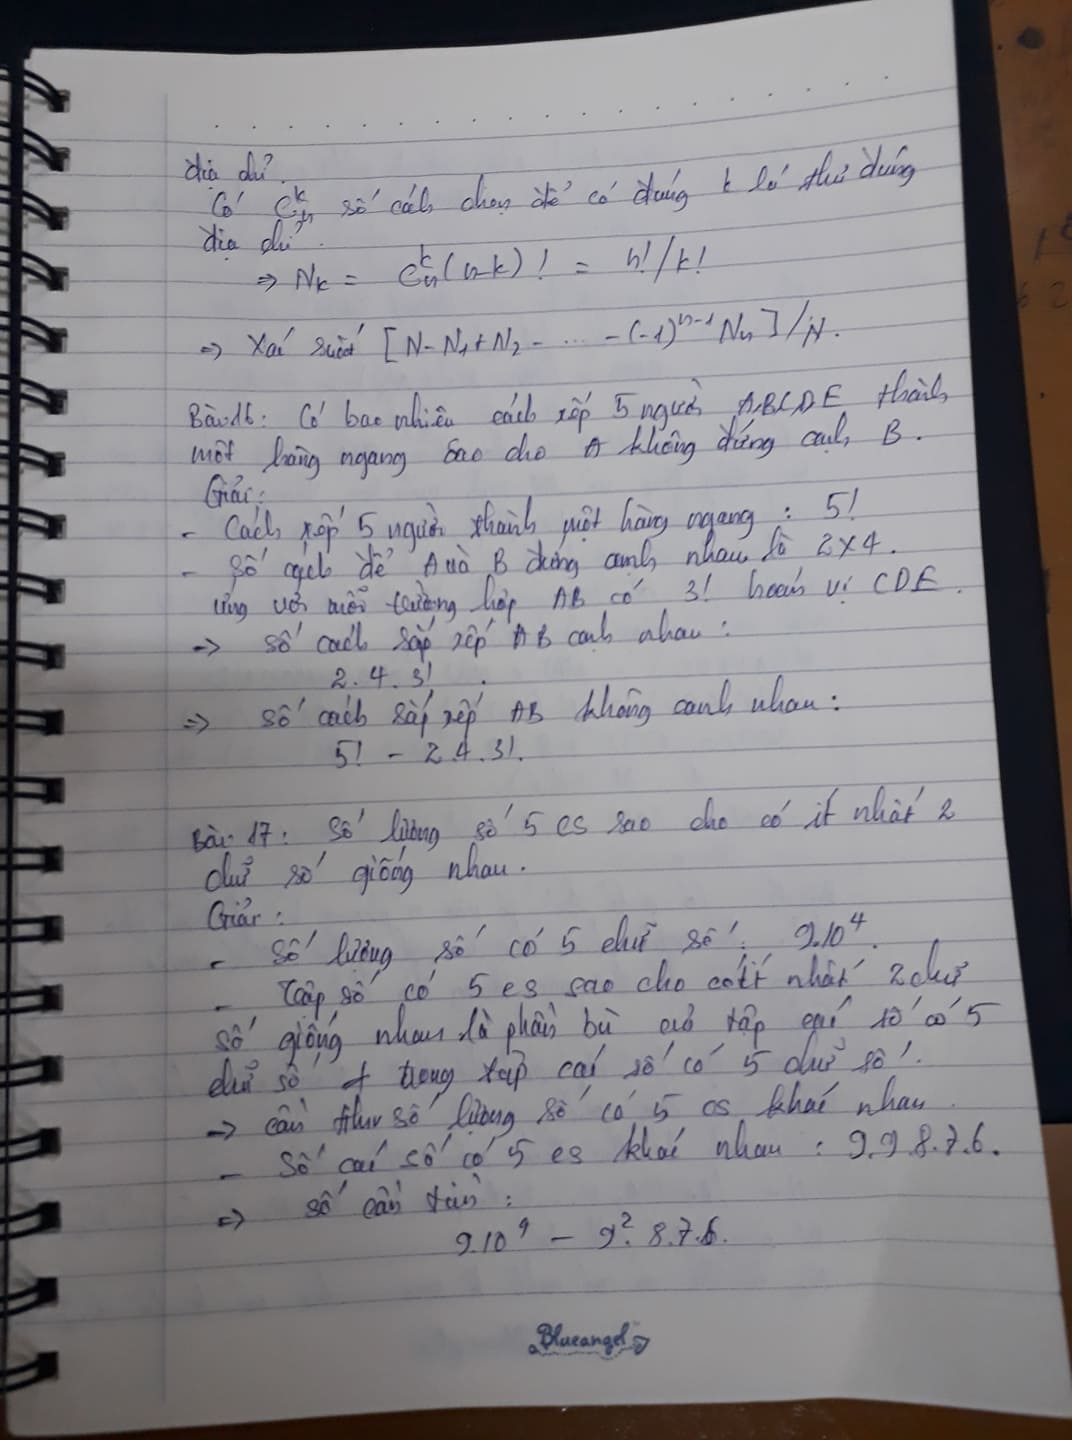 địa chỉ.
Có C_n^k số cách chọn để có đúng k lá thư đúng
địa chỉ.
⇒ N_k = C_n^k (n-k)! = n!/k!
⇒ Xác suất [N - N_1 + N_2 - ... - (-1)^{n-1} N_n]/N.
Bài 16: Có bao nhiêu cách xếp 5 người ABCDE thành
một hàng ngang sao cho A không đứng cạnh B.
Giải:
- Cách xếp 5 người thành một hàng ngang : 5!
- Số cách để A và B đứng cạnh nhau là 2x4.
ứng với mỗi trường hợp AB có 3! hoán vị CDE.
⇒ số cách sắp xếp AB cạnh nhau :
2.4.3!
⇒ số cách sắp xếp AB không cạnh nhau :
5! - 2.4.3!.
Bài 17: Số lượng số 5 cs sao cho có ít nhất 2
chữ số giống nhau.
Giải :
- Số lượng số có 5 chữ số : 9.10^4.
- Tập số có 5 cs sao cho có ít nhất 2 chữ
số giống nhau là phần bù của tập các số có 5
chữ số ≠ trong tập các số có 5 chữ số.
→ cần tìm số lượng số có 5 cs khác nhau
- Số các số có 5 cs khác nhau : 9.9.8.7.6.
⇒ số cần tìm :
9.10^4 - 9^2.8.7.6.
Blueangel